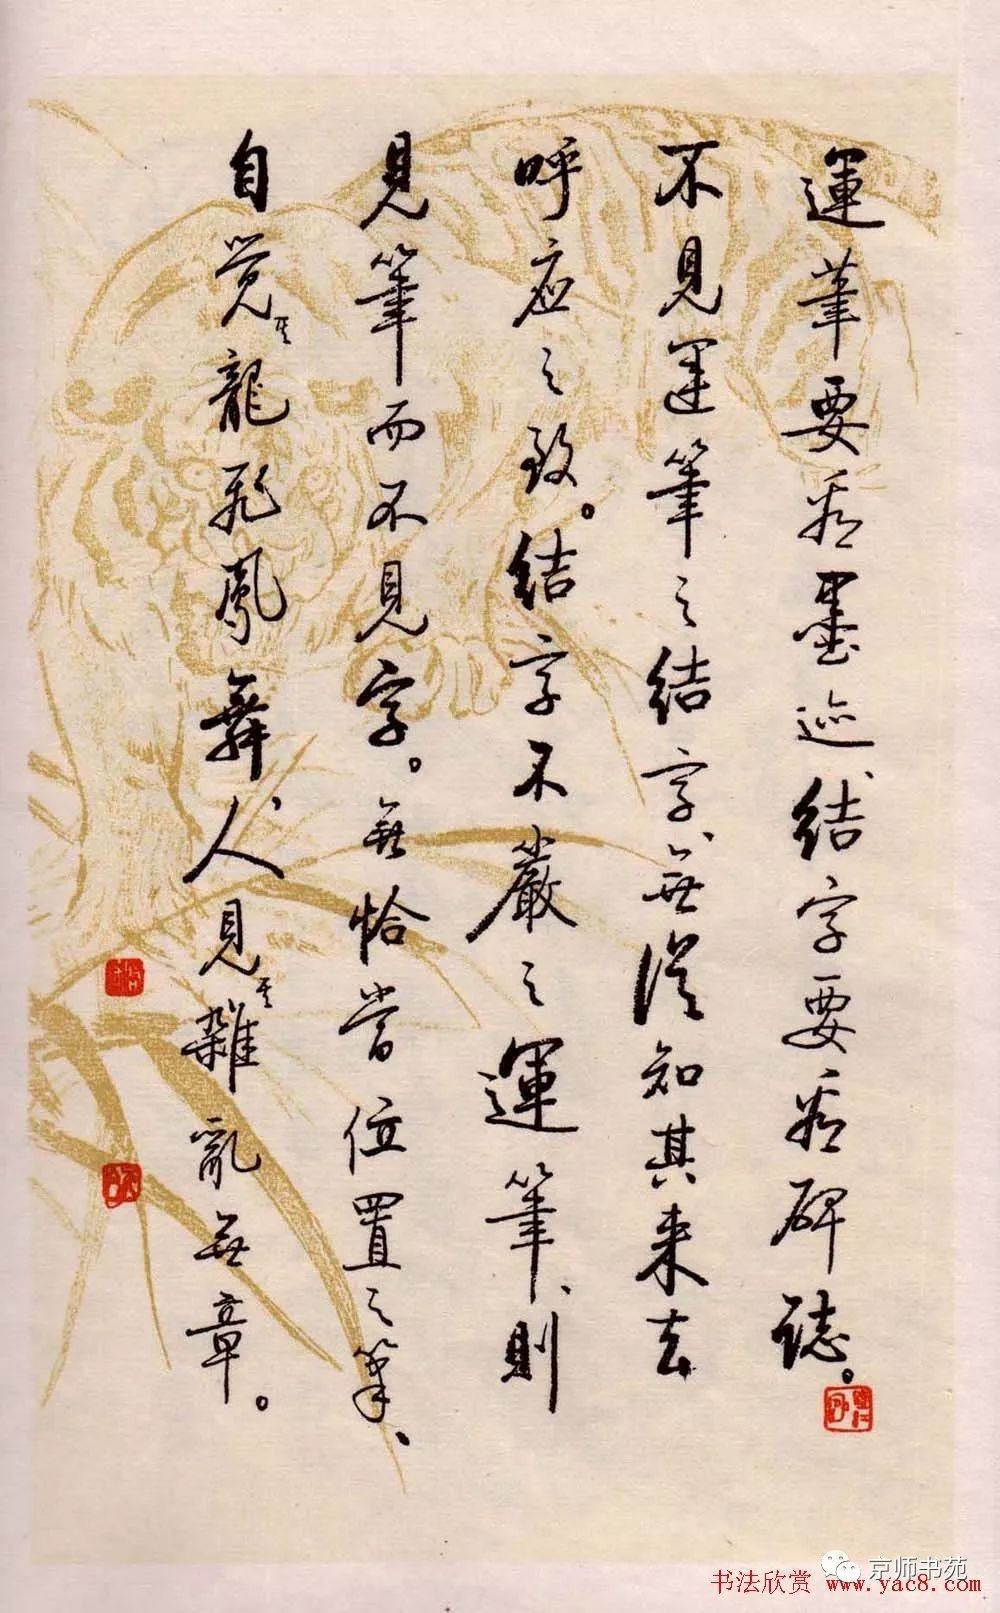 運筆要看墨迹、結字要看碑誌。
不見運筆之結字、無從知其来去
呼应之致。結字不嚴之運筆、則
見筆而不見字。無恰当位置之筆、
自覚其龍飛鳳舞、人見其雜亂無章。
京师书苑
书法欣赏 www.yac8.com